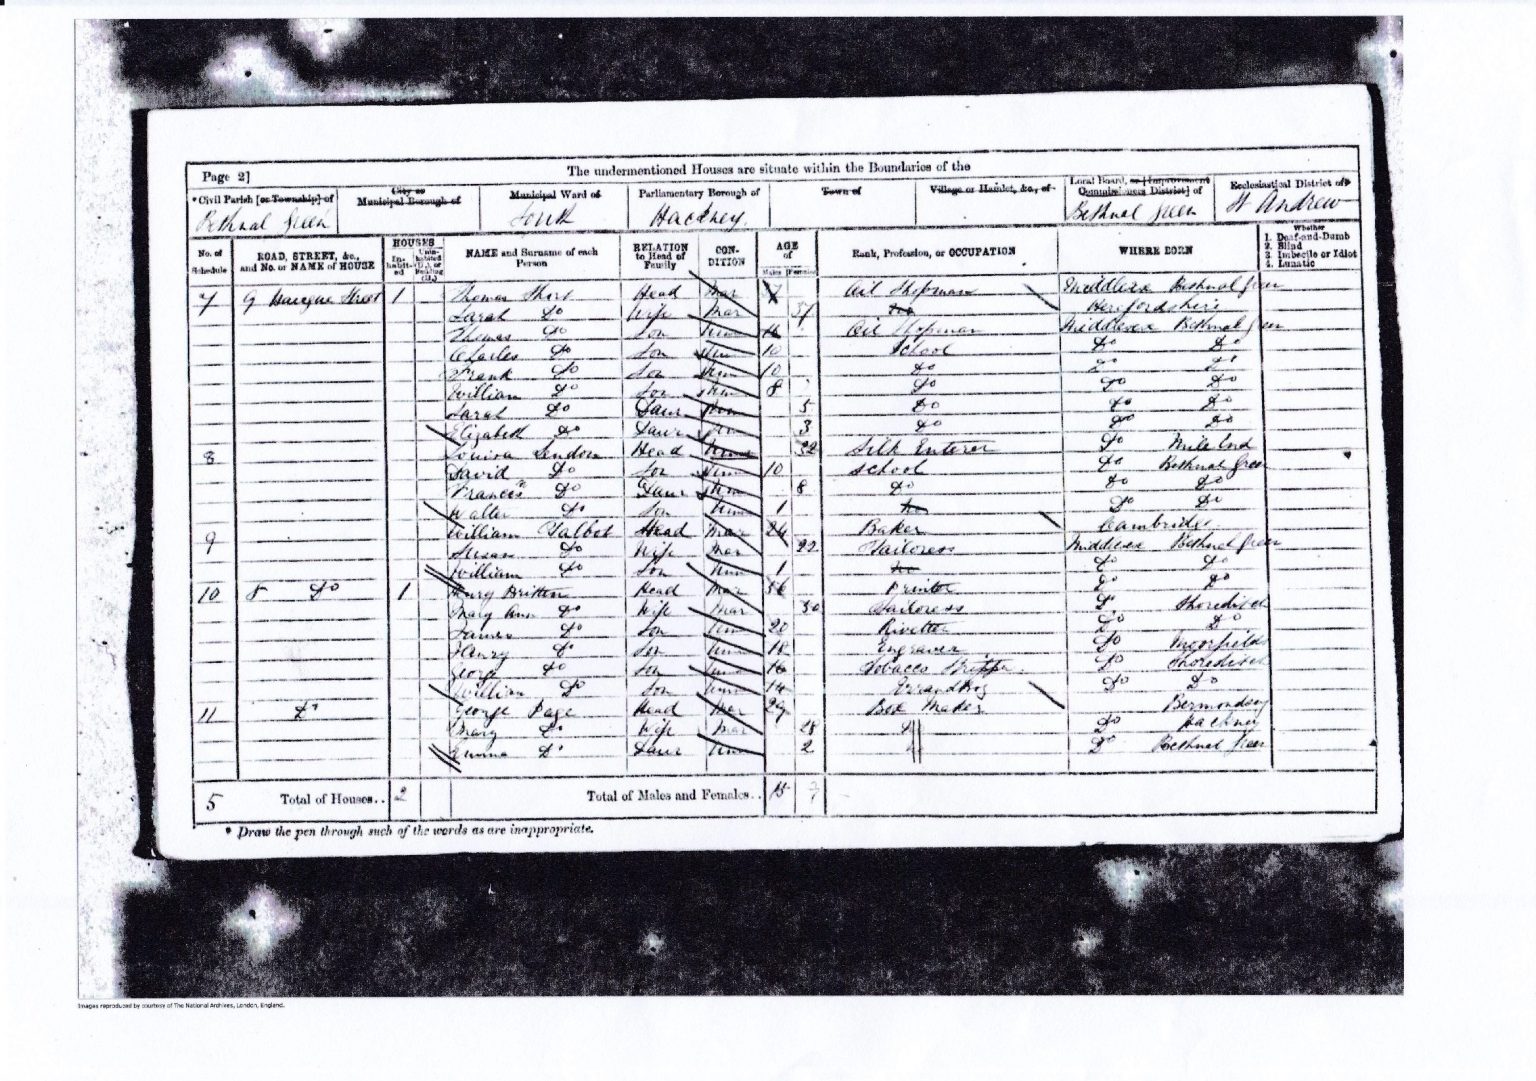 Page 2]
The undermentioned Houses are situate within the Boundaries of the
* Civil Parish [or Township] of
City or Municipal Borough of
Municipal Ward of
Parliamentary Borough of
Town of
Village or Hamlet, &c., of
Local Board, or [Improvement Commissioners District] of
Ecclesiastical District of
Bethnal Green
South
Hackney
Bethnal Green
St Andrew
No. of Schedule
ROAD, STREET, &c., and No. or NAME of HOUSE
HOUSES
Inhabited
Uninhabited (U.), or Building (B.)
NAME and Surname of each Person
RELATION to Head of Family
CONDITION
AGE of
Males
Females
Rank, Profession, or OCCUPATION
WHERE BORN
Whether
1. Deaf-and-Dumb
2. Blind
3. Imbecile or Idiot
4. Lunatic
7 9 Street 1 Thomas Short Head Mar Oil Shopman Middlesex Bethnal Green
Sarah Do Wife Mar 37 Herefordshire
Thomas Do Son Unm 16 Oil Shopman Middlesex Bethnal Green
Charles Do Son Unm 10 School Do Do
Frank Do Son Unm 10 Do Do Do
William Do Son Unm 8 Do Do Do
Sarah Do Daur Unm 5 Do Do Do
Elizabeth Do Daur Unm 3 Do Do Do
8 Louisa Head 32 Silk Do Mile End
David Do Son Unm 10 School Do Bethnal Green
Frances Do Daur Unm 8 Do Do Do
Walter Do Son Unm 1 Do Do
9 William Talbot Head Mar 24 Baker Cambridge
Susan Do Wife Mar 22 Tailoress Middlesex Bethnal Green
William Do Son Unm 1 Do Do
10 8 Do 1 Henry Britten Head Mar 56 Printer Do Do
Mary Ann Do Wife Mar 50 Tailoress Do Shoreditch
James Do Son Unm 20 Rivetter Do Do
Henry Do Son Unm 18 Engraver Do Moorfields
George Do Son Unm 16 Tobacco Stripper Do Shoreditch
William Do Son Unm 14 Errand Boy Do Do
11 Do George Page Head Mar 29 Box Maker Bermondsey
Mary Do Wife Mar 28 Do Hackney
Emma Do Daur Unm 2 Do Bethnal Green
5 Total of Houses.. 2 Total of Males and Females.. 15 7
* Draw the pen through such of the words as are inappropriate.
Images reproduced by courtesy of The National Archives, London, England.